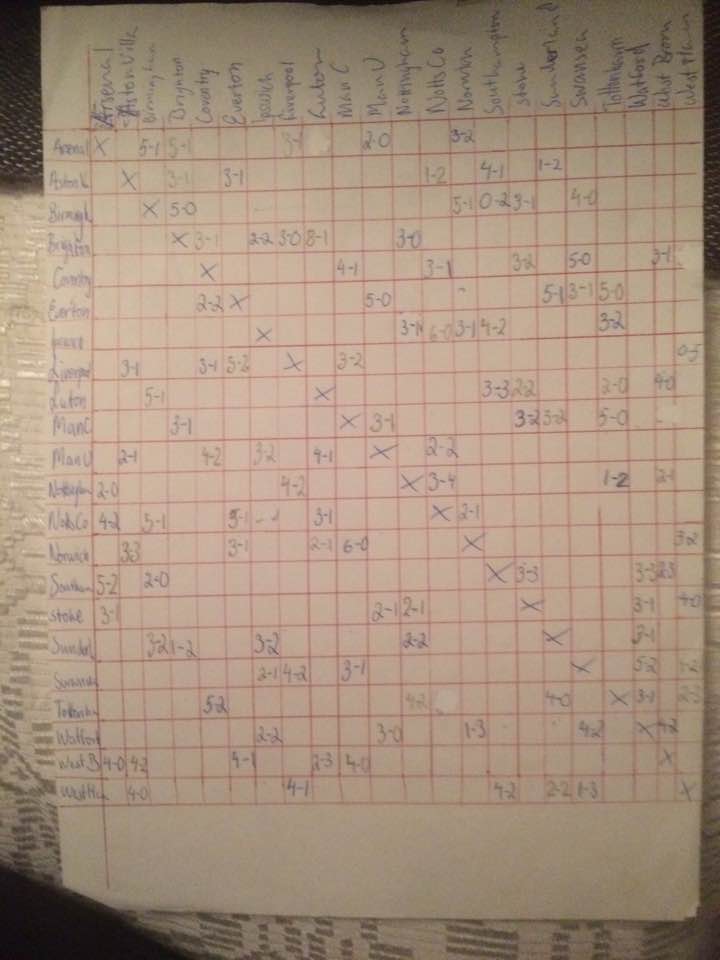 Arsenal Aston Villa Birmingham Brighton Coventry Everton Ipswich Liverpool Luton Man C Man U Nottingham Notts Co Norwich Southampton Stoke Sunderland Swansea Tottenham Watford West Brom West Ham
Arsenal X 5-1 5-1 3-1 2-0 3-2
Aston V X 3-1 3-1 1-2 4-1 1-2
X 5-0 5-1 0-2 3-1 4-0
Brighton X 3-1 2-2 3-0 8-1 3-0
Coventry X 4-1 3-1 3-2 5-0 3-1
Everton 2-2 X 5-0 5-1 3-1 5-0
X 3-1 6-0 3-1 4-2 3-2
Liverpool 3-1 3-1 5-2 X 3-2 0-5
Luton 5-1 X 3-3 2-2 2-0 4-0
Man C 3-1 X 3-1 3-2 3-2 5-0
Man U 2-1 4-2 3-2 4-1 X 2-2
Nottingham 2-0 4-2 X 3-4 1-2 2-1
Notts Co 4-2 5-1 5-1 3-1 X 2-1
Norwich 3-3 3-1 2-1 6-0 X 3-2
Southam 5-2 2-0 X 3-3 3-3 2-3
stoke 3-1 2-1 2-1 X 3-1
Sunderl 3-2 1-2 3-2 2-2 X 3-1
2-1 4-2 3-1 X 5-2
5-2 4-2 4-0 X 3-1
Watford 2-2 3-0 1-3 4-2 X
West B 4-0 4-2 4-1 2-3 4-0 X
4-0 4-1 4-2 2-2 1-3 X